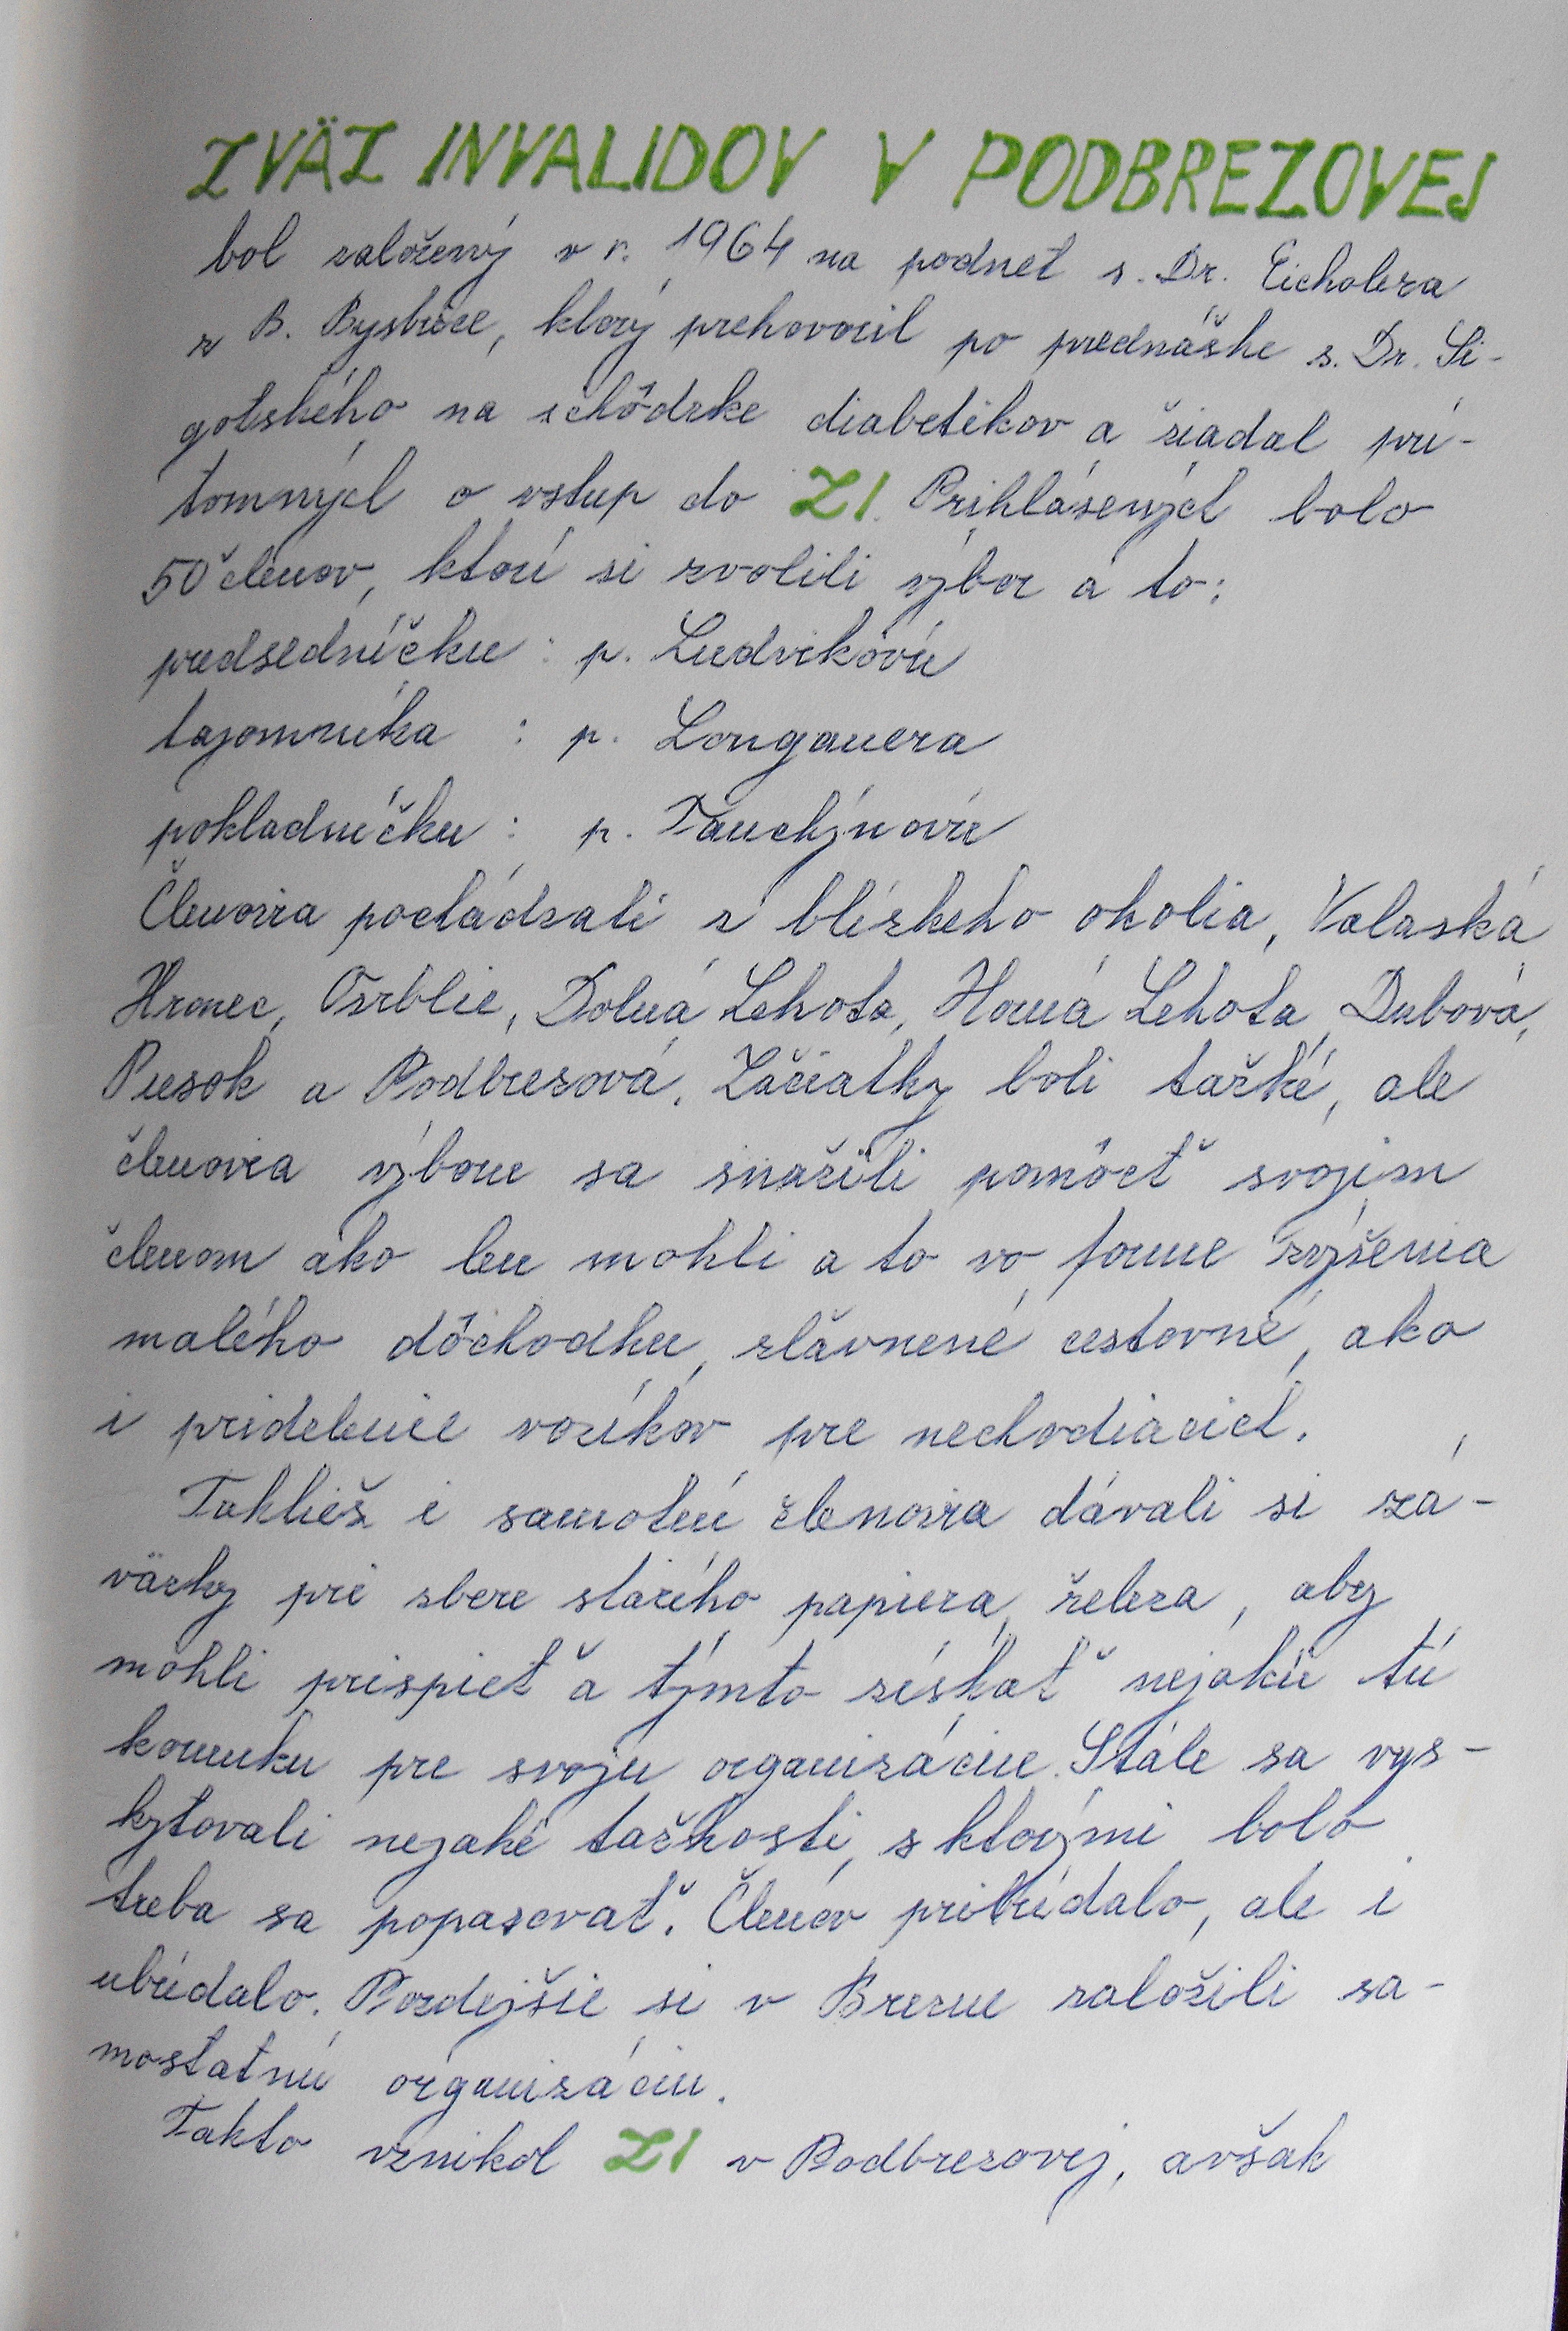 ZVÄZ INVALIDOV V PODBREZOVEJ
bol založený v r. 1964 na podnet s. Dr. Eicholera
z B. Bystrice, ktorý prehovoril po prednáške s. Dr. Si-
gotského na schôdzke diabetikov a žiadal prí-
tomných o vstup do ZI. Prihlásených bolo
50 členov, ktorí si zvolili výbor a to:
predsedníčku : p. Ludvikovú
tajomníka : p. Longauera
pokladníčku : p. Fauchýnovú
Členovia pochádzali z blízkeho okolia, Valaská
Hronec, Osrblie, Dolná Lehota, Horná Lehota, Dubová,
Piesok a Podbrezová. Začiatky boli ťažké, ale
členovia výboru sa snažili pomôcť svojim
členom ako len mohli a to vo forme zvýšenia
malého dôchodku, zlavnené cestovné, ako
i pridelenie vozíkov pre nechodiacich.
Taktiež i samotní členovia dávali si zá-
väzky pri zbere starého papiera, železa, aby
mohli prispieť a týmto získať nejakú tú
korunku pre svoju organizáciu. Stále sa vys-
kytovali nejaké ťažkosti, s ktorými bolo
treba sa popasovať. Členov pribúdalo, ale i
ubúdalo. Pozdejšie si v Brezne založili sa-
mostatnú organizáciu.
Takto vznikol ZI v Podbrezovej, avšak